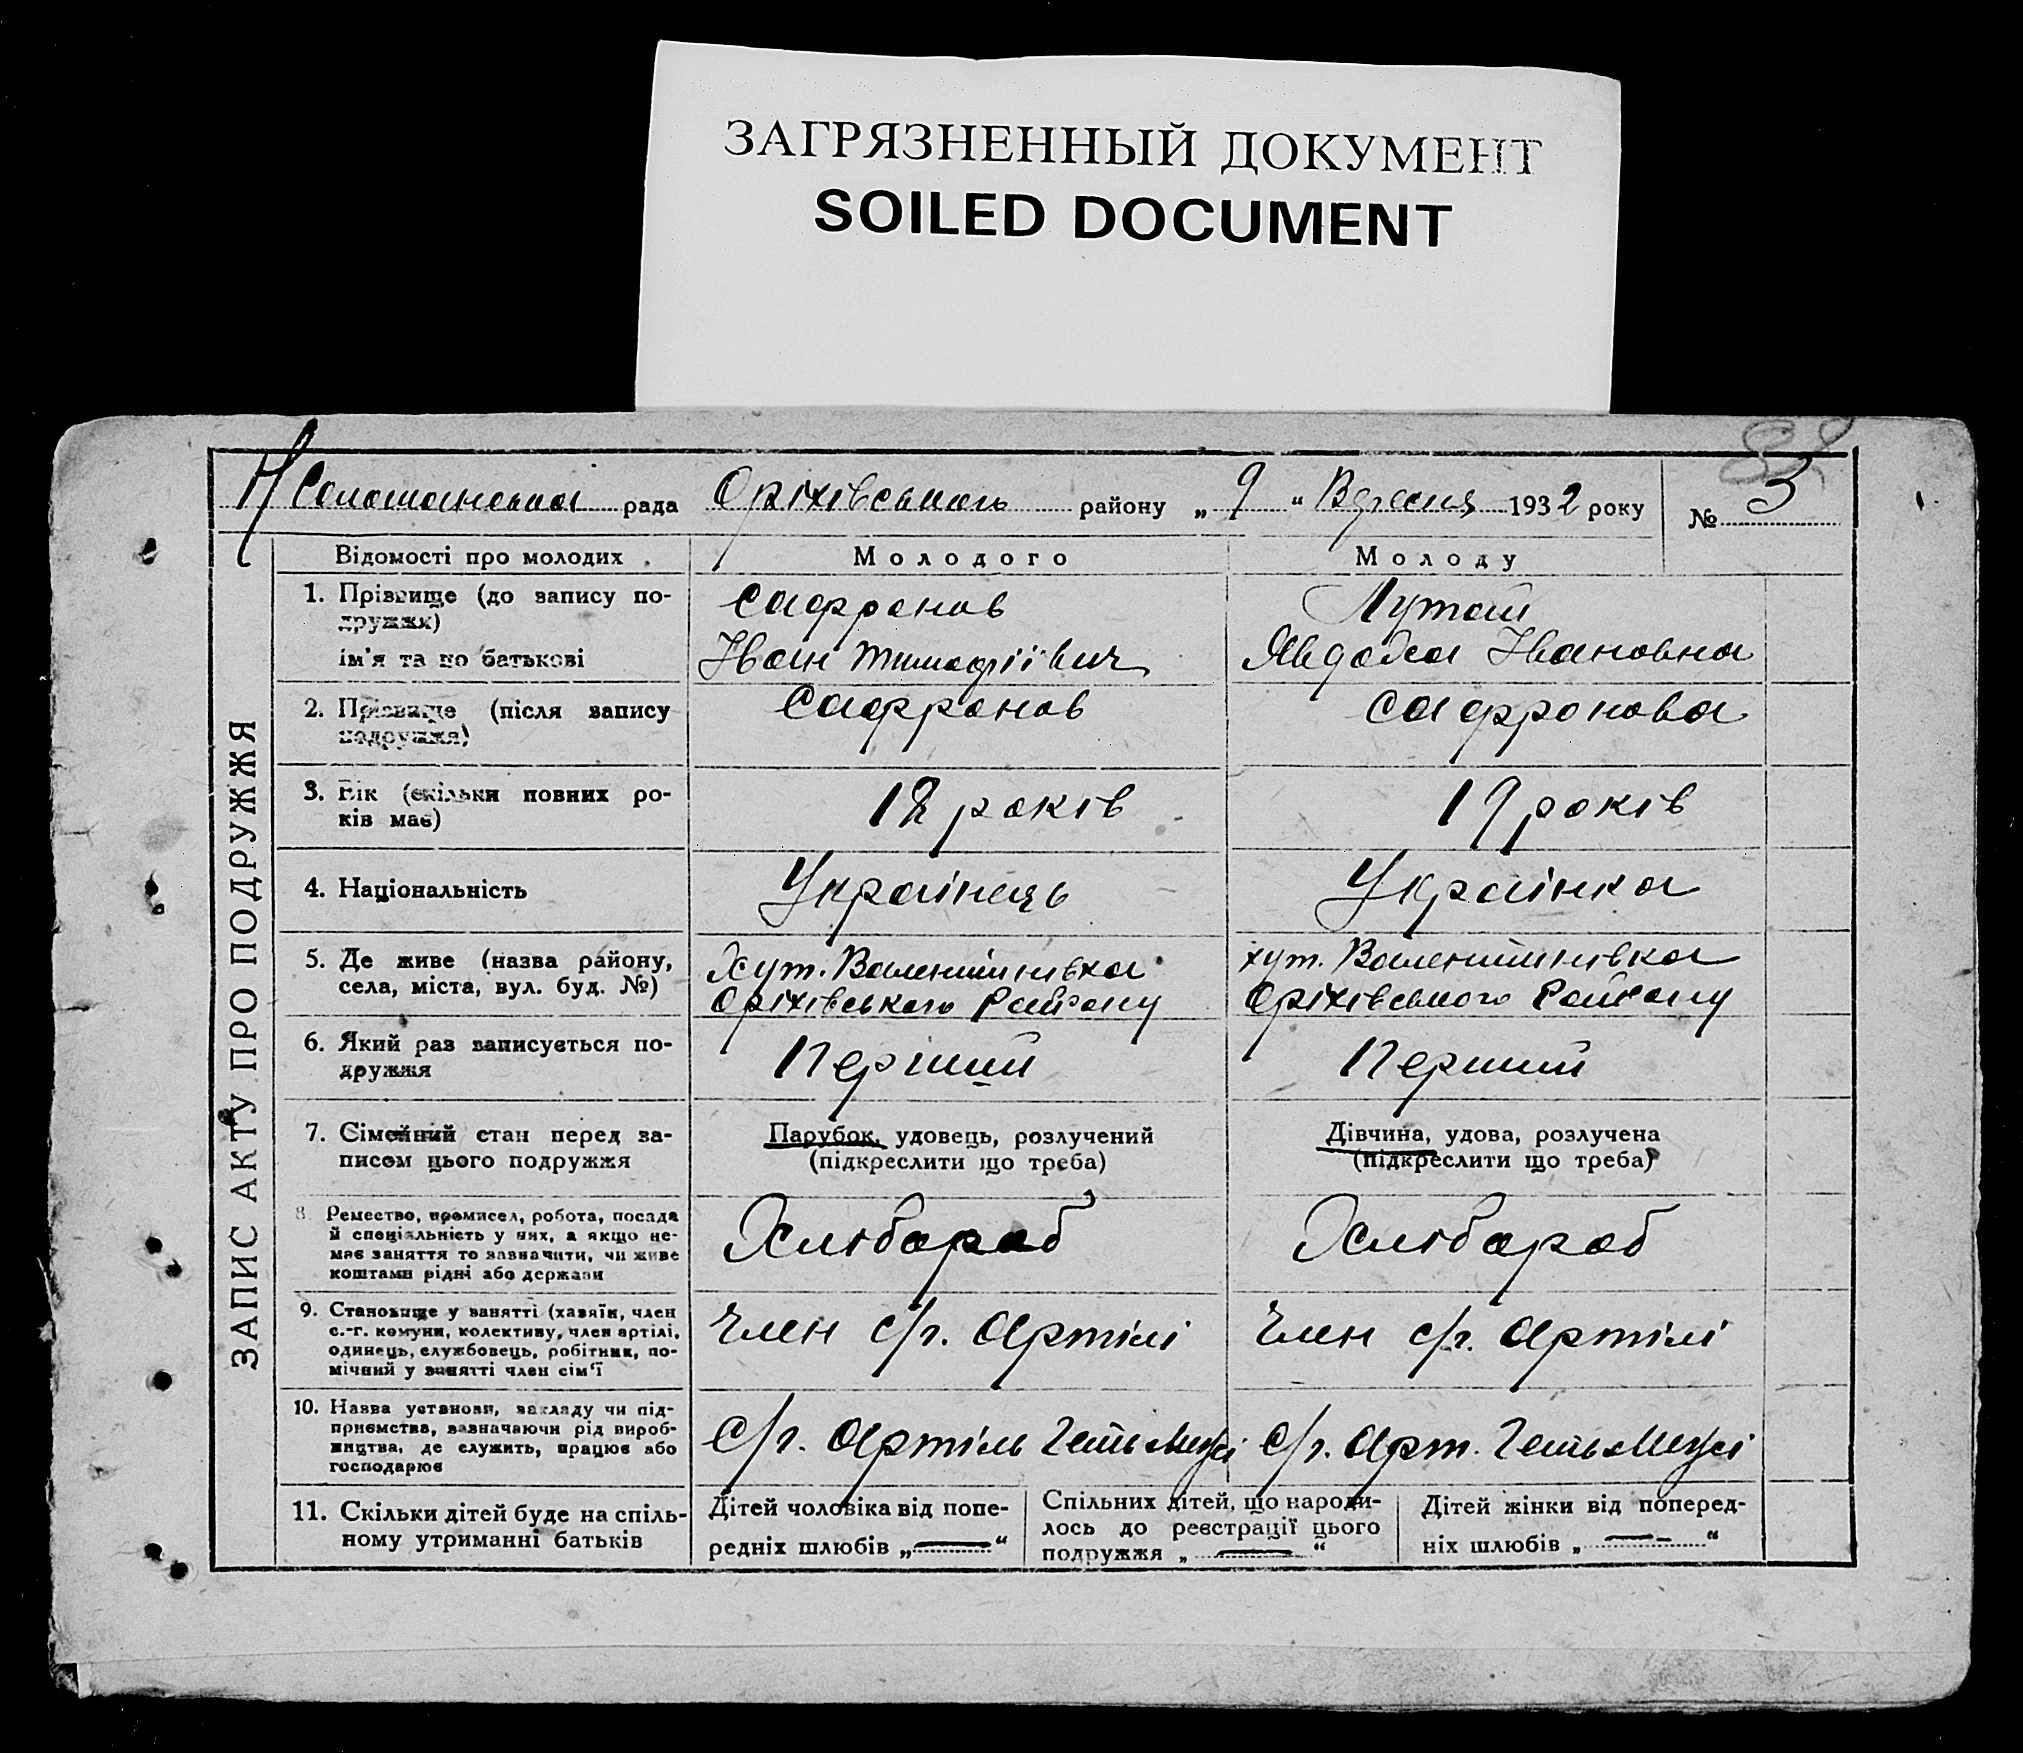 ЗАГРЯЗНЕННЫЙ ДОКУМЕНТ
SOILED DOCUMENT
рада Оріхівського району „ 9 “ Вересня 1932 року № 3
ЗАПИС АКТУ ПРО ПОДРУЖЖЯ
Відомості про молодих Молодого Молоду
1. Прізвище (до запису по-
дружжя)
Сафронов Лутай
ім'я та по батькові
Іван Тимофіївич Явдоха Івановна
2. Прізвище (після запису
подружжя)
Сафронов Сафронова
3. Вік (скільки повних ро-
ків має)
18 років 19 років
4. Національність Українець Українка
5. Де живе (назва району,
села, міста, вул. буд. №)
Хут. хут.
Оріхівського Району Оріхівського Району
6. Який раз записується по-
дружжя
Перший Перший
7. Сімейний стан перед за-
писом цього подружжя
Парубок, удовець, розлучений
(підкреслити що треба)
Дівчина, удова, розлучена
(підкреслити що треба)
8. Ремество, промисел, робота, посада
й спеціяльність у них, а якщо не-
має заняття то зазначити, чи живе
коштами рідні або держави
Хлібороб Хлібороб
9. Становище у занятті (хазяїн, член
с.-г. комуни, колективу, член артілі,
одинець, службовець, робітник, по-
мічний у занятті член сім'ї
Член с/г. Артілі Член с/г. Артілі
10. Назва установи, закладу чи під-
приємства, зазначаючи рід вироб-
ництва, де служить, працює або
господарює
С/г. Артіль Геть Межі С/г. Арт. Геть Межі
11. Скільки дітей буде на спіль-
ному утриманні батьків
Дітей чоловіка від попе-
редніх шлюбів „ — “
Спільних дітей, що народи-
лось до реєстрації цього
подружжя „ — “
Дітей жінки від поперед-
ніх шлюбів „ — “